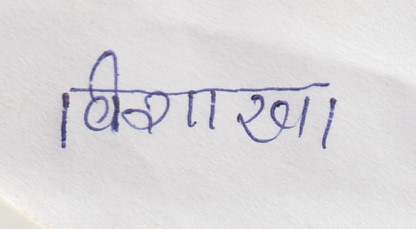 विशाखा